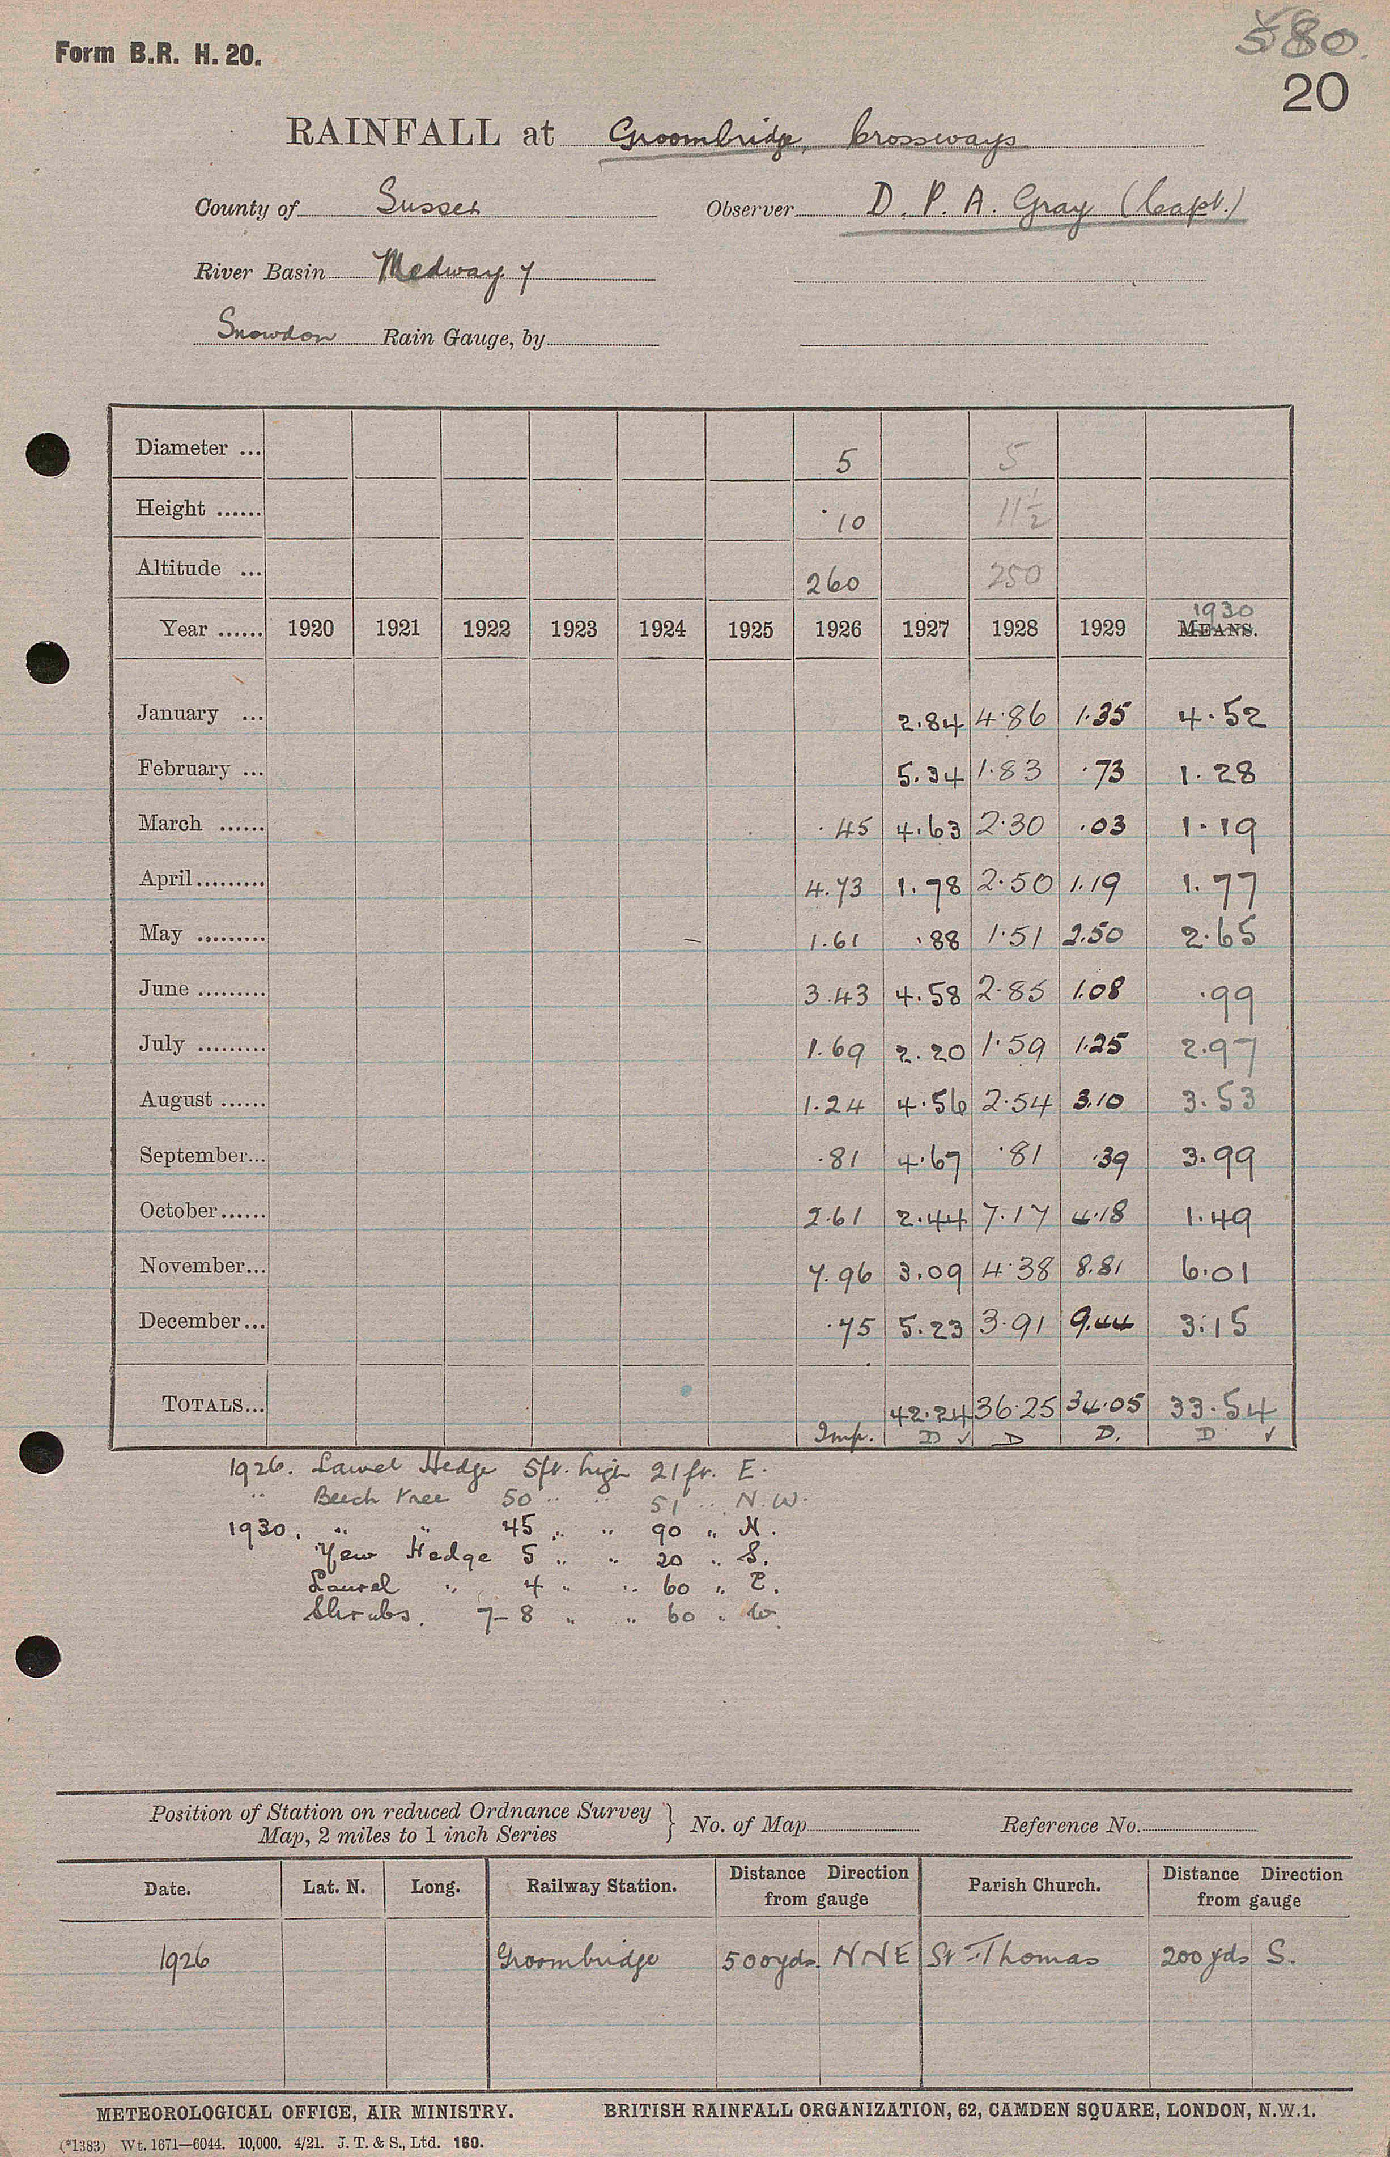 Form B.R. H. 20.
580.
20
RAINFALL at Groombridge, Crossways
County of Sussex Observer D. P. A. Gray (Capt.)
River Basin Medway 7
Snowdon Rain Gauge, by
Diameter ... 5 5
Height ...... 10 11½
Altitude ... 260 250
1930
Year ...... 1920 1921 1922 1923 1924 1925 1926 1927 1928 1929 MEANS.
January ... 2.84 4.86 1.35 4.52
February ... 5.34 1.83 .73 1.28
March ...... .45 4.63 2.30 .03 1.19
April......... 4.73 1.78 2.50 1.19 1.77
May ......... 1.61 .88 1.51 2.50 2.65
June ......... 3.43 4.58 2.85 1.08 .99
July ......... 1.69 2.20 1.59 1.25 2.97
August ...... 1.24 4.56 2.54 3.10 3.53
September... .81 4.67 .81 .39 3.99
October...... 2.61 2.44 7.17 4.18 1.49
November... 7.96 3.09 4.38 8.81 6.01
December... .75 5.23 3.91 9.44 3.15
TOTALS... 42.24 36.25 34.05 33.54
Imp. D ✓ D D. D ✓
1926. Laurel Hedge 5ft. high 21 ft. E.
" Beech tree 50 " " 51 " N.W.
1930. " " 45 " " 90 " N.
Yew Hedge 5 " " 20 " S.
Laurel " 4 " " 60 " E.
Shrubs. 7-8 " " 60 " W.
Position of Station on reduced Ordnance Survey
Map, 2 miles to 1 inch Series } No. of Map Reference No.
Date. Lat. N. Long. Railway Station. Distance Direction from gauge Parish Church. Distance Direction from gauge
1926 Groombridge 500yds. NNE St Thomas 200 yds S.
METEOROLOGICAL OFFICE, AIR MINISTRY. BRITISH RAINFALL ORGANIZATION, 62, CAMDEN SQUARE, LONDON, N.W.1.
(*1383) Wt. 1671—6044. 10,000. 4/21. J. T. & S., Ltd. 160.